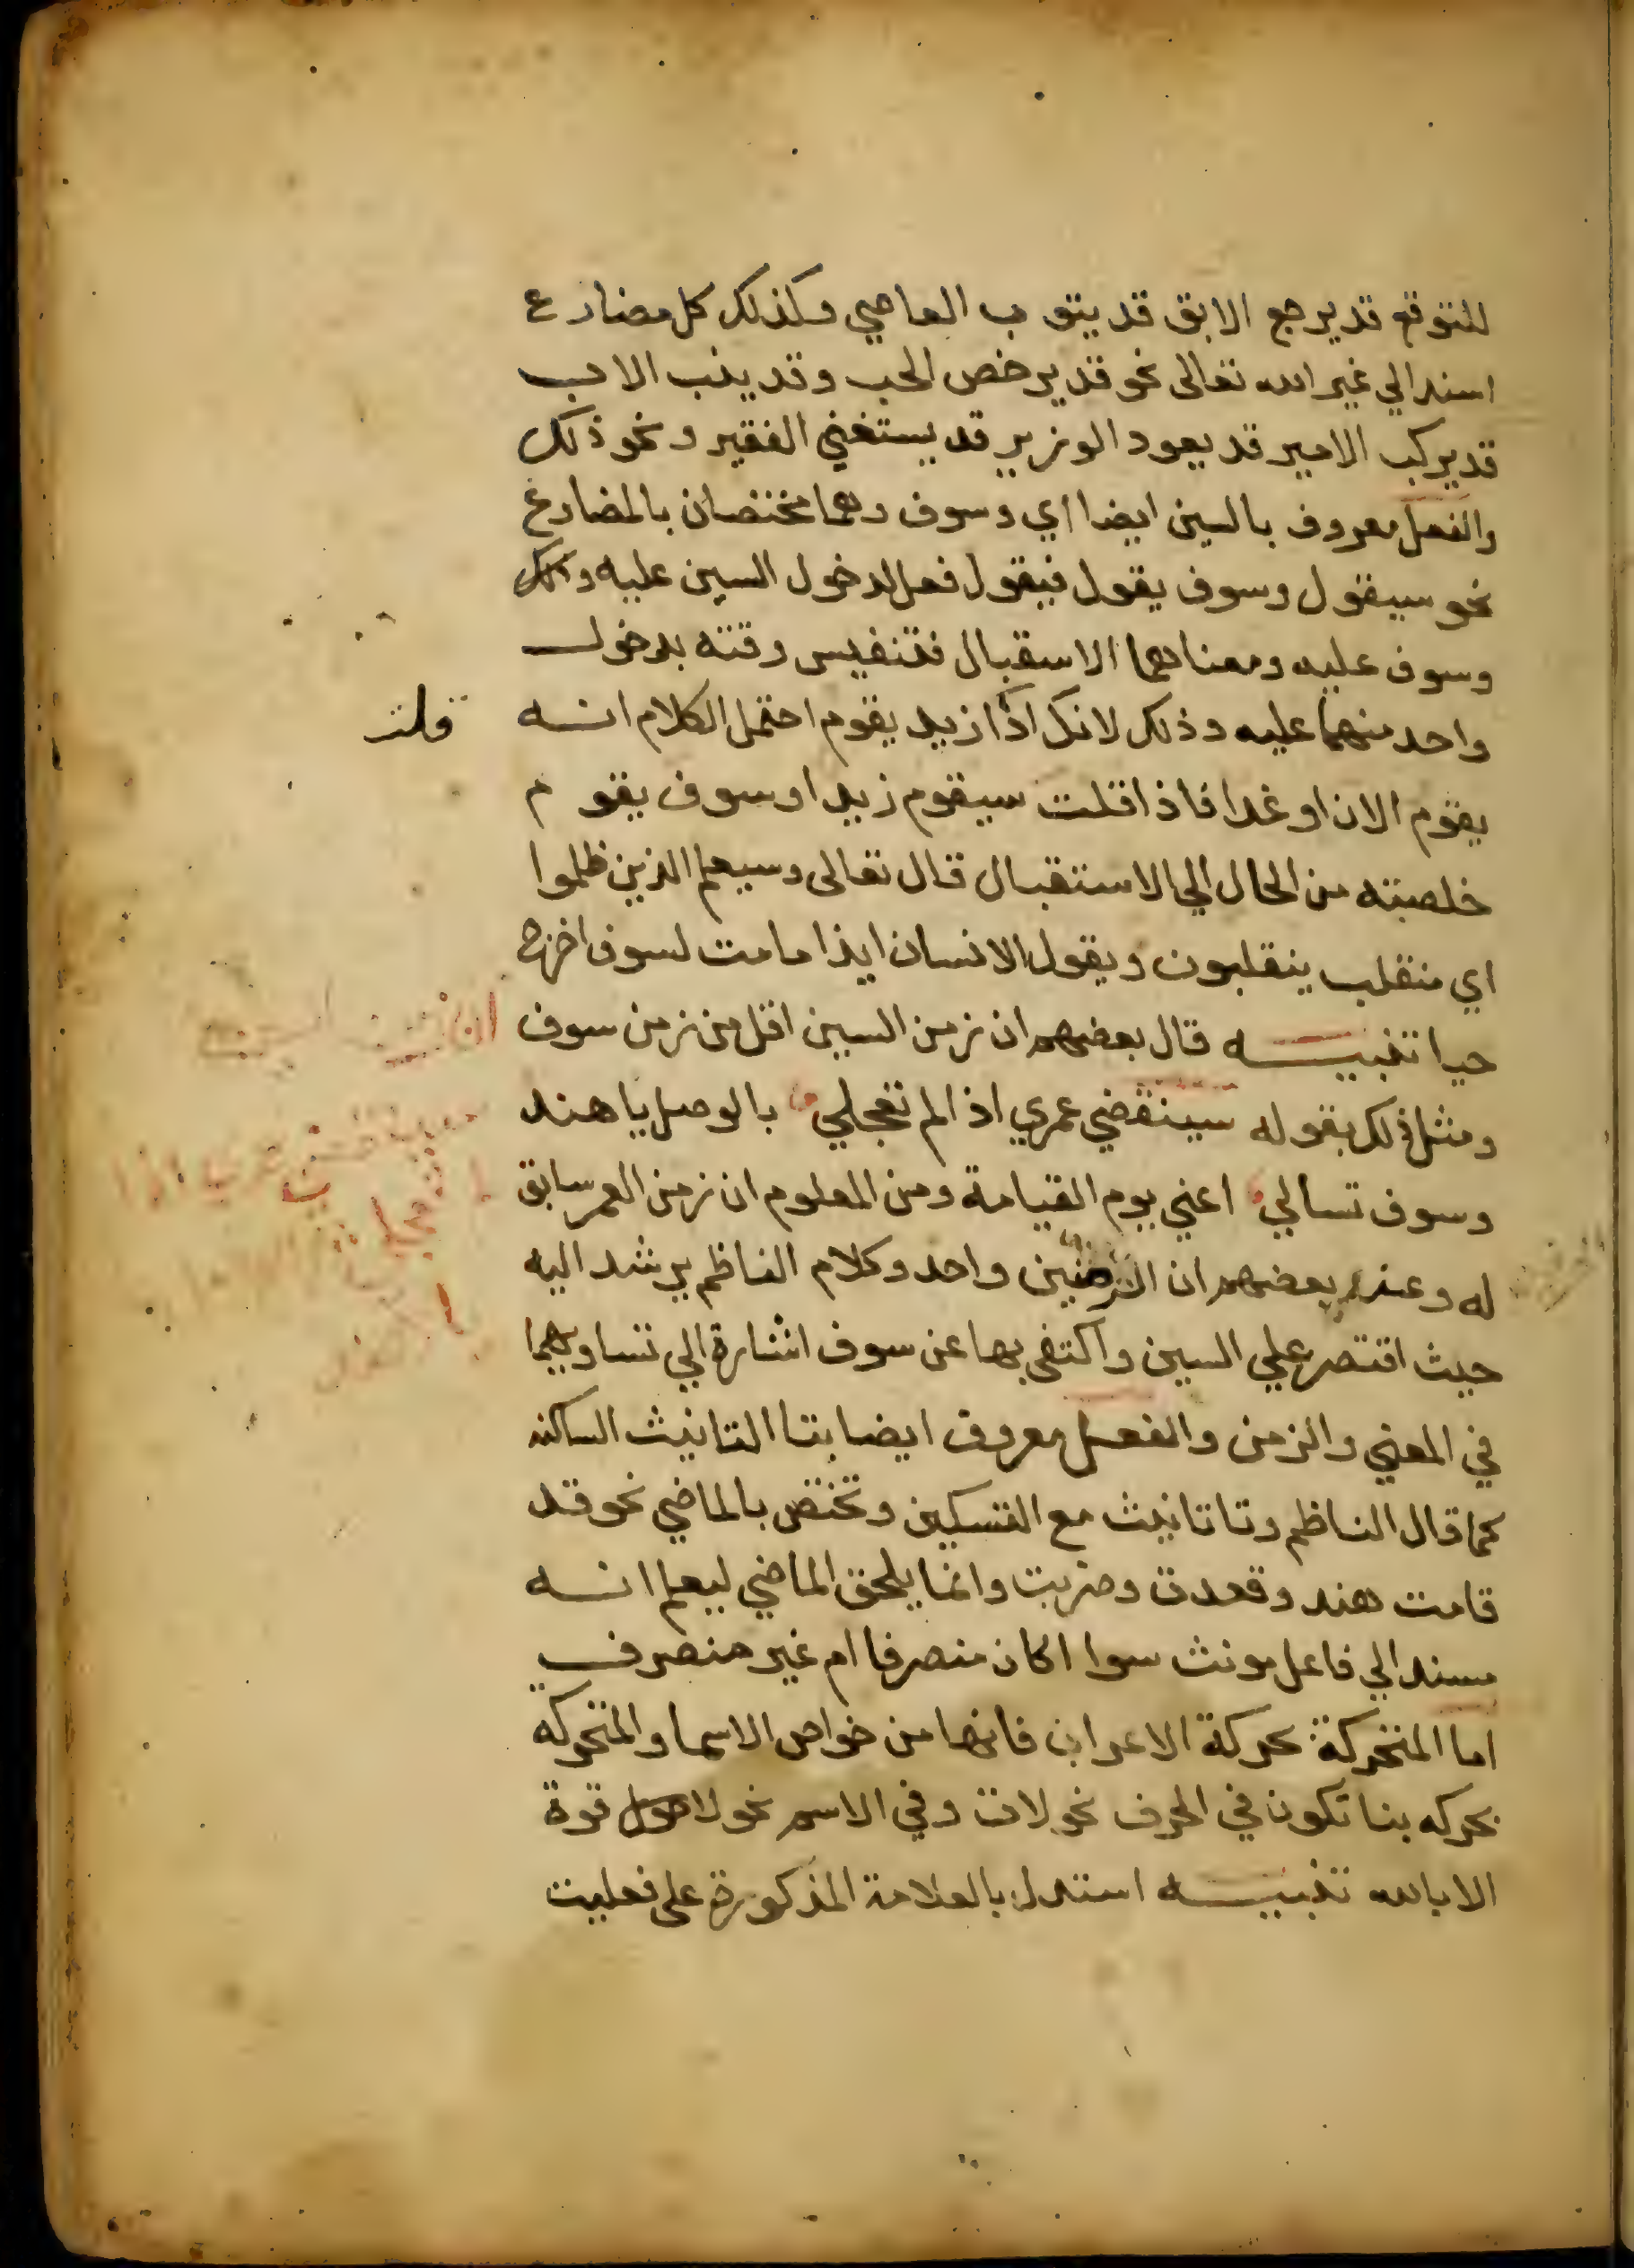 للتوقع قد يرجع الابق قد يتوب العاصي وكذلك كل مضارع
اسند الي غير الله تعالى نحو قد يرخص الحب وقد يذب الاب
قد يركب الامير قد يعود الوزير قد يستغني الفقير ونحو ذلك
والفعل معروف بالسين ايضا اي وسوف وهما مختصان بالمضارع
نحو سيقول وسوف يقول فيقول فعل لدخول السين عليه
وسوف عليه ومعناهما الاسقبال فتنفيس وقته بدخول
واحد منهما عليه وذلك لانك اذا زيد يقوم احتمل الكلام انه
قلت
يقوم الان او غدا فاذا قلت سيقوم زيد او سوف يقوم
خلصته من الحال الي الاستقبال قال تعالى وسيعلم الذين ظلموا
اي منقلب ينقلبون ويقول الانسان ايذا ما مت لسوف اخرج
حيا تنبيه قال بعضهم ان زمن السين اقل من زمن سوف
ومثل ذلك بقوله سينقضي عمري اذا لم تعجلي بالوصل يا هند
وسوف تسالي اعني يوم القيامة ومن المعلوم ان زمن العمر سابق
له وعند بعضهم ان الزمنين واحد وكلام الناظم يرشد اليه
حيث اقتصر علي السين واكتفى بها عن سوف اشارة الي تساويهما
في المعني والزمن والفعل معروف ايضا بتا التانيث الساكنه
كما قال الناظم وتا تانيث مع التسكين وتختص بالماضي نحو قد
قامت هند وقعدت وضربت وانما يلحق الماضي ليعلم انه
مسند الي فاعل مونث سوا اكان منصرفا ام غير منصرف
اما المتحركة بحركة الاعراب فانها من خواص الاسما والمتحركه
بحركه بنا تكون في الحرف نحو لات وفي الاسم نحو لا حول قوة
الا بالله تنبيه استدل بالعلامة المذكورة على فعليت